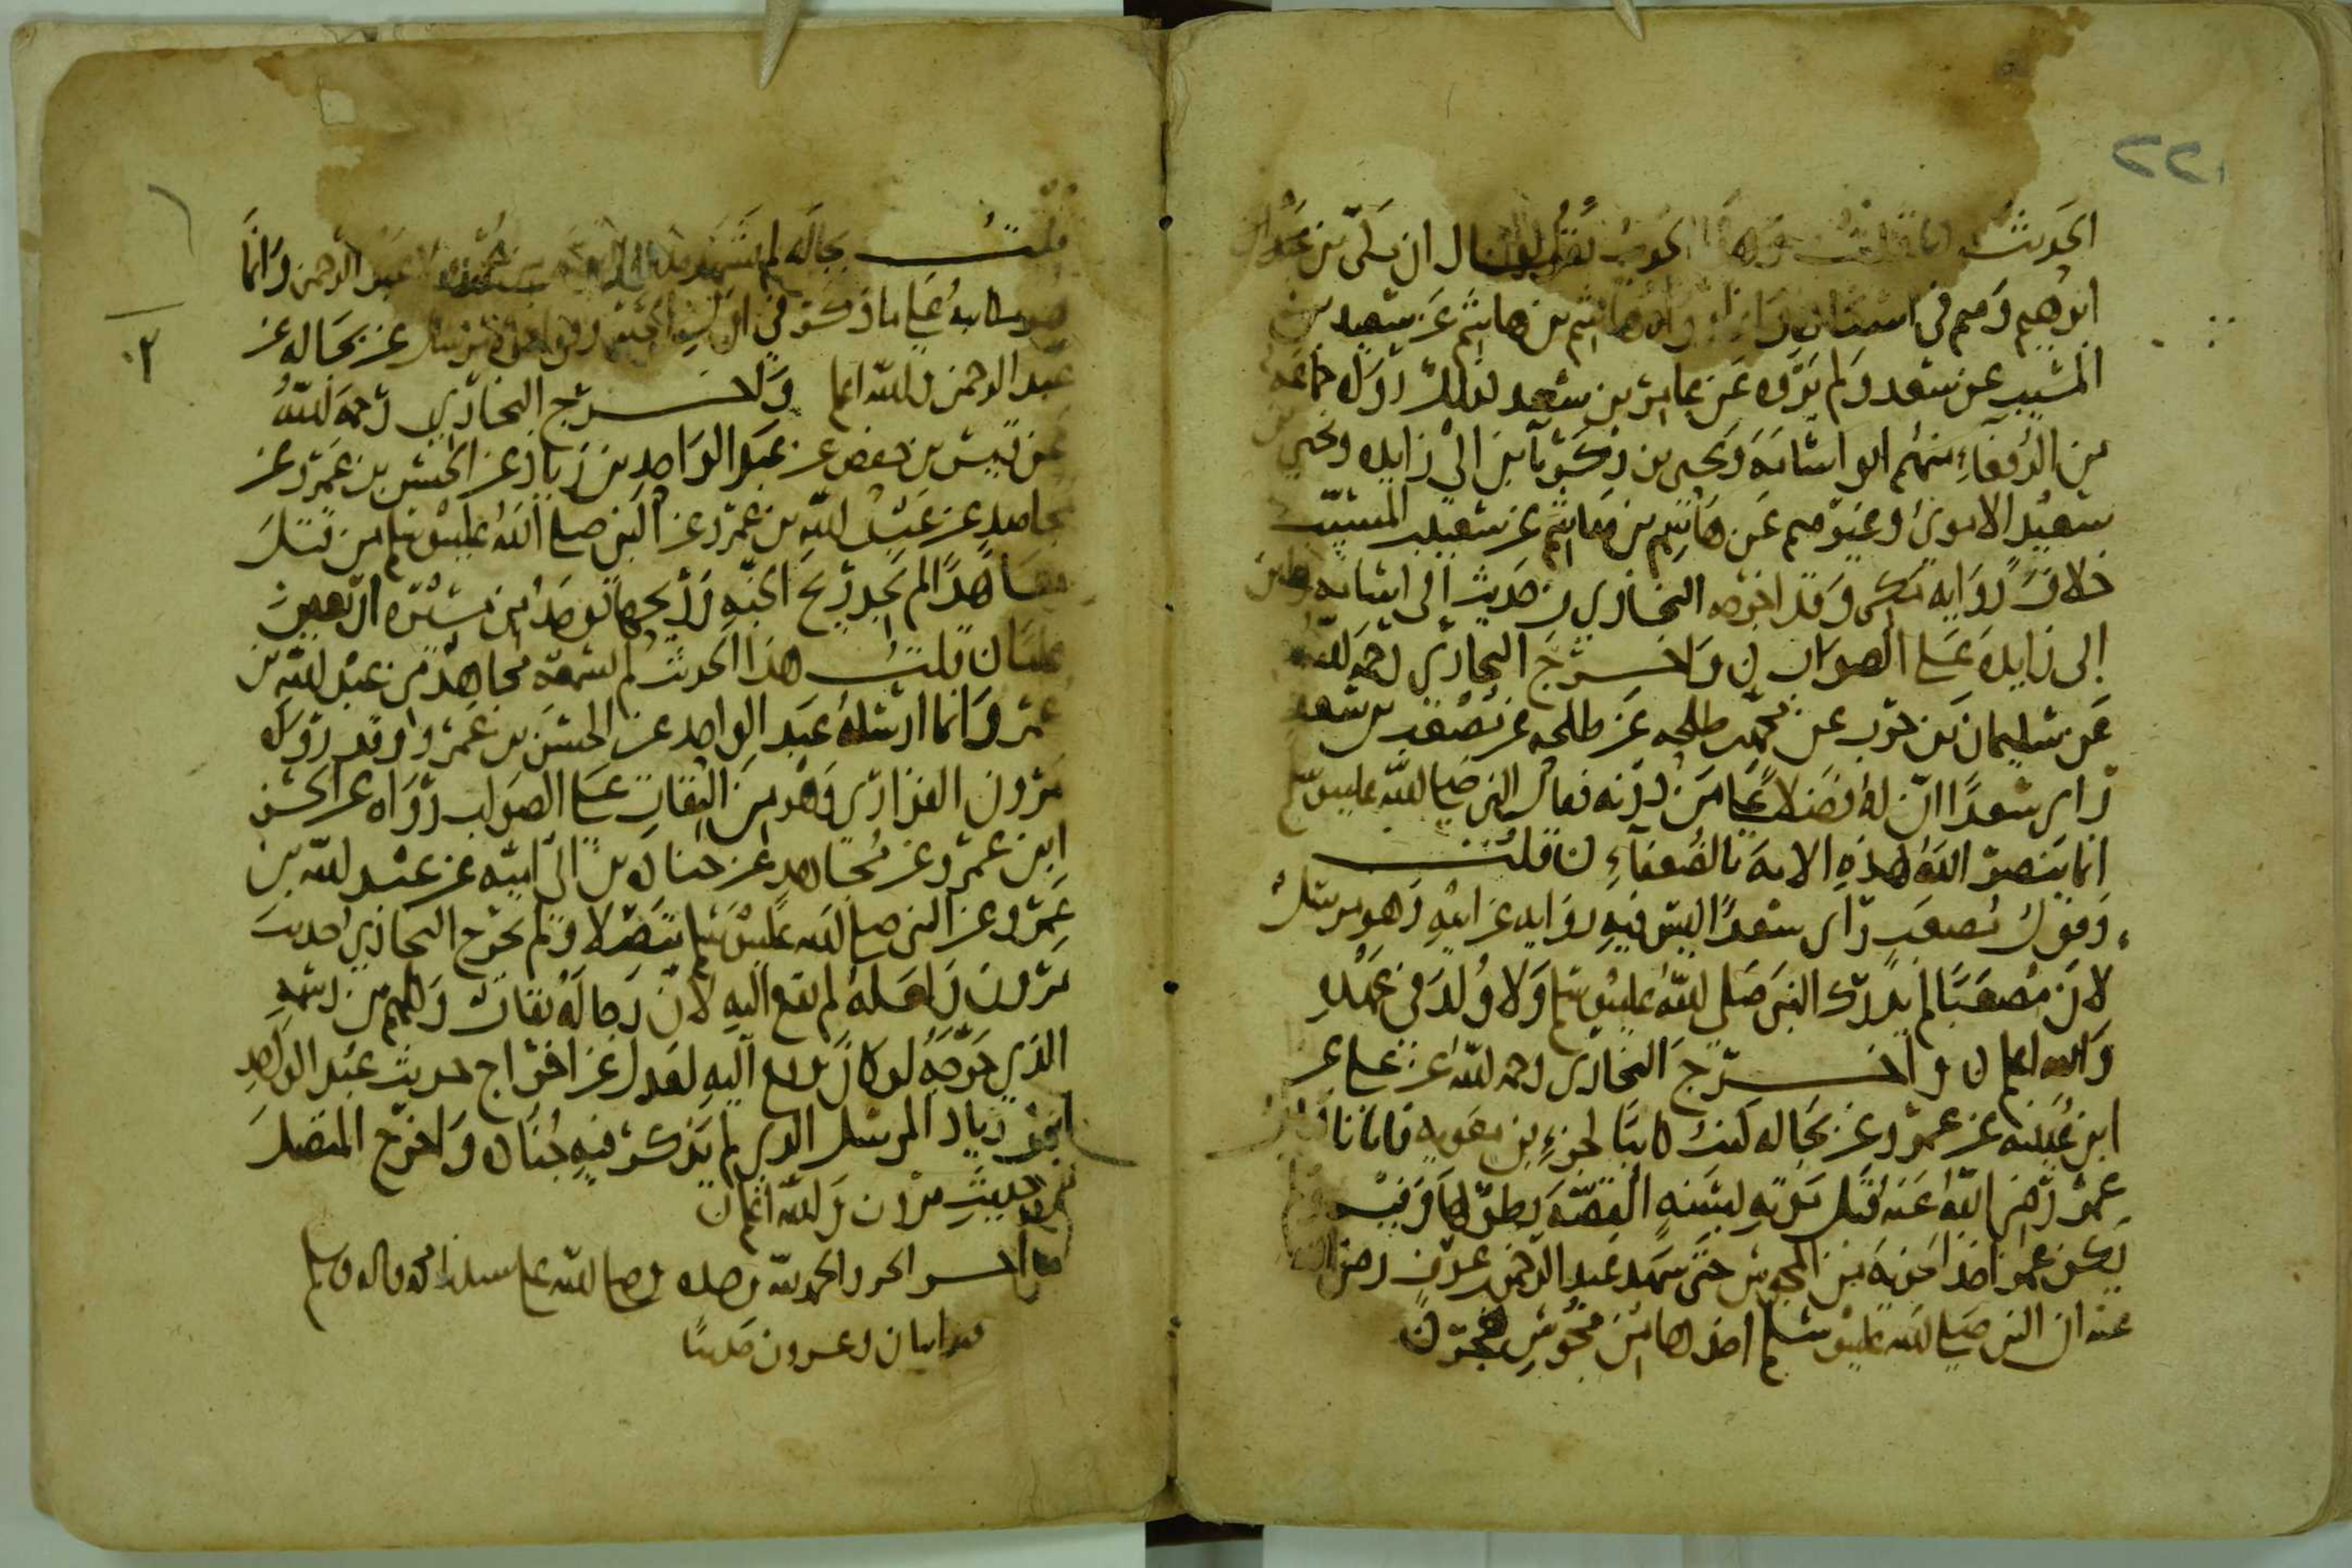 ٢٢
الحديث قلت وهذا الحديث يقال ان مكي بن
ابرهيم وهم في اسناده هاشم بن هاشم عن سعيد بن
المسيب عن سعد ولم يروه عن عامر بن سعد كذلك رواه جماعة
من الرفعاء منهم ابو اسامة ويحيى بن زكريا بن ابي زايدة ويحيى بن
سعيد الاموي وغيرهم عن هاشم بن هاشم عن سعيد بن المسيب
خلاف رواية مكي وقد اخرجه البخاري من حديث ابي اسامة وابن
ابي زايدة على الصواب ن واخرج البخاري رحمه الله
عن سليمان بن حرب عن محمد بن طلحة عن طلحة عن مصعب بن سعد
راى سعدا ان له فضلا على من دونه فقال النبي صلى الله عليه وسلم
انما ينصر الله هذه الامة بالضعفاء ن قلت
وقول مصعب راى سعد ليس فيه رواية عن ابيه وهو مرسل
لان مصعبا لم يدرك النبي صلى الله عليه وسلم ولا ولد في عهده
والله اعلم ن واخرج البخاري رحمه الله عن علي عن
ابن عيينة عن عمرو عن بجالة كنت كاتبا لجزء بن معوية فاتانا كتاب
عمر رضي الله عنه قبل موته بسنة القصة بطولها وفيه ولم
يكن عمر اخذ الجزية من المجوس حتى شهد عبد الرحمن بن عوف رضي الله
عنه ان النبي صلى الله عليه وسلم اخذها من مجوس هجر ن
قلت بجالة لم يشهد عبد الرحمن وانما
هو كتابة على ما ذكر في اول الحديث عن بجالة عن
عبد الرحمن والله اعلم واخرج البخاري رحمه الله
عن قيس بن حفص عن عبد الواحد بن زياد عن الحسن بن عمرو عن
مجاهد عن عبد الله بن عمرو عن النبي صلى الله عليه وسلم من قتل
معاهدا لم يجد ريح الجنة وان ريحها توجد من مسيرة اربعين
عاما ن قلت هذا الحديث لم يسمعه مجاهد من عبد الله بن
عمرو وانما ارسله عبد الواحد عن الحسن بن عمرو وقد رواه
مرون الفزاري وهو من الثقات على الصواب رواه عن الحسن
ابن عمرو عن مجاهد عن جنادة بن ابي امية عن عبد الله بن
عمرو عن النبي صلى الله عليه وسلم متصلا ولم يخرج البخاري حديث
مرون ولعله لم يقع اليه لان رجاله ثقات وكلهم من رسمه
الذي خرجه لو كان يقع اليه لعدل عن اخراج حديث عبد الواحد
ابن زياد المرسل الذي لم يذكر فيه جنادة واخرج المتصل
من حديث مرون والله اعلم ن
اخر الجزو والحمد لله وحده وصلى الله على سيدنا محمد واله وسلم
مايتان وعشرون حديثا